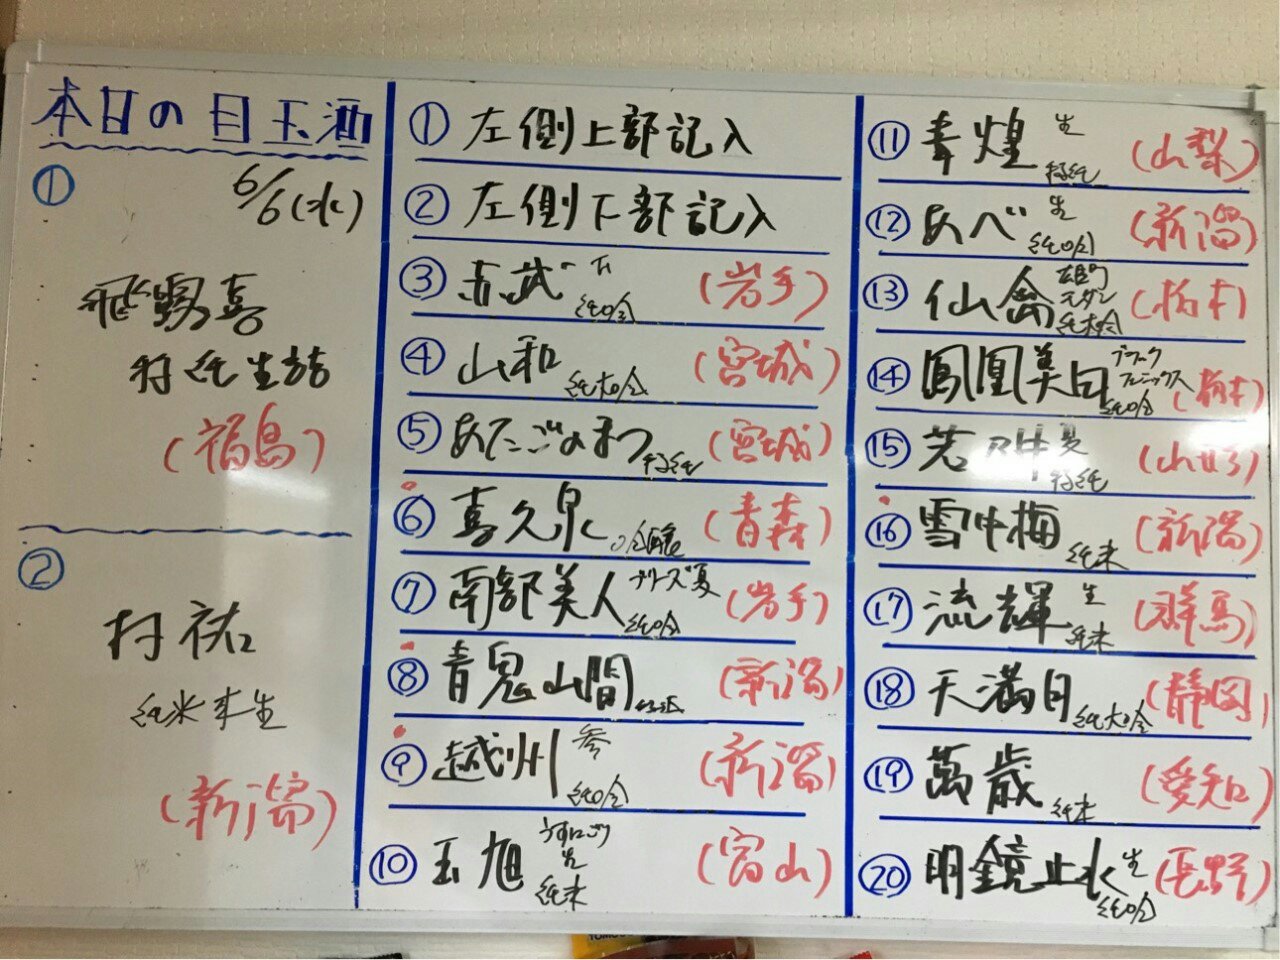 本日の目玉酒
① 6/6(水)
飛露喜
特純生詰
(福島)
②
村祐
純米本生
(新潟)
① 左側上部記入
② 左側下部記入
③ 赤武 純吟 (岩手)
④ 山和 純大吟 (宮城)
⑤ あたごのまつ 特純 (宮城)
⑥ 喜久泉 吟醸 (青森)
⑦ 南部美人 ブリーズ夏 純吟 (岩手)
⑧ 青鬼山間 (新潟)
⑨ 越州 参 純吟 (新潟)
⑩ 玉旭 うすにごり 生 純米 (富山)
⑪ 青煌 生 特純 (山梨)
⑫ あべ 生 純吟 (新潟)
⑬ 仙禽 雄町 モダン (栃木)
⑭ 鳳凰美田 ブラックフェニックス 純吟 (栃木)
⑮ 夏 特純
⑯ 雪中梅 純米 (新潟)
⑰ 流輝 生 純米 (群馬)
⑱ 天満月 純大吟 (静岡)
⑲ 萬歳 純米 (愛知)
⑳ 明鏡止水 生 純吟 (長野)